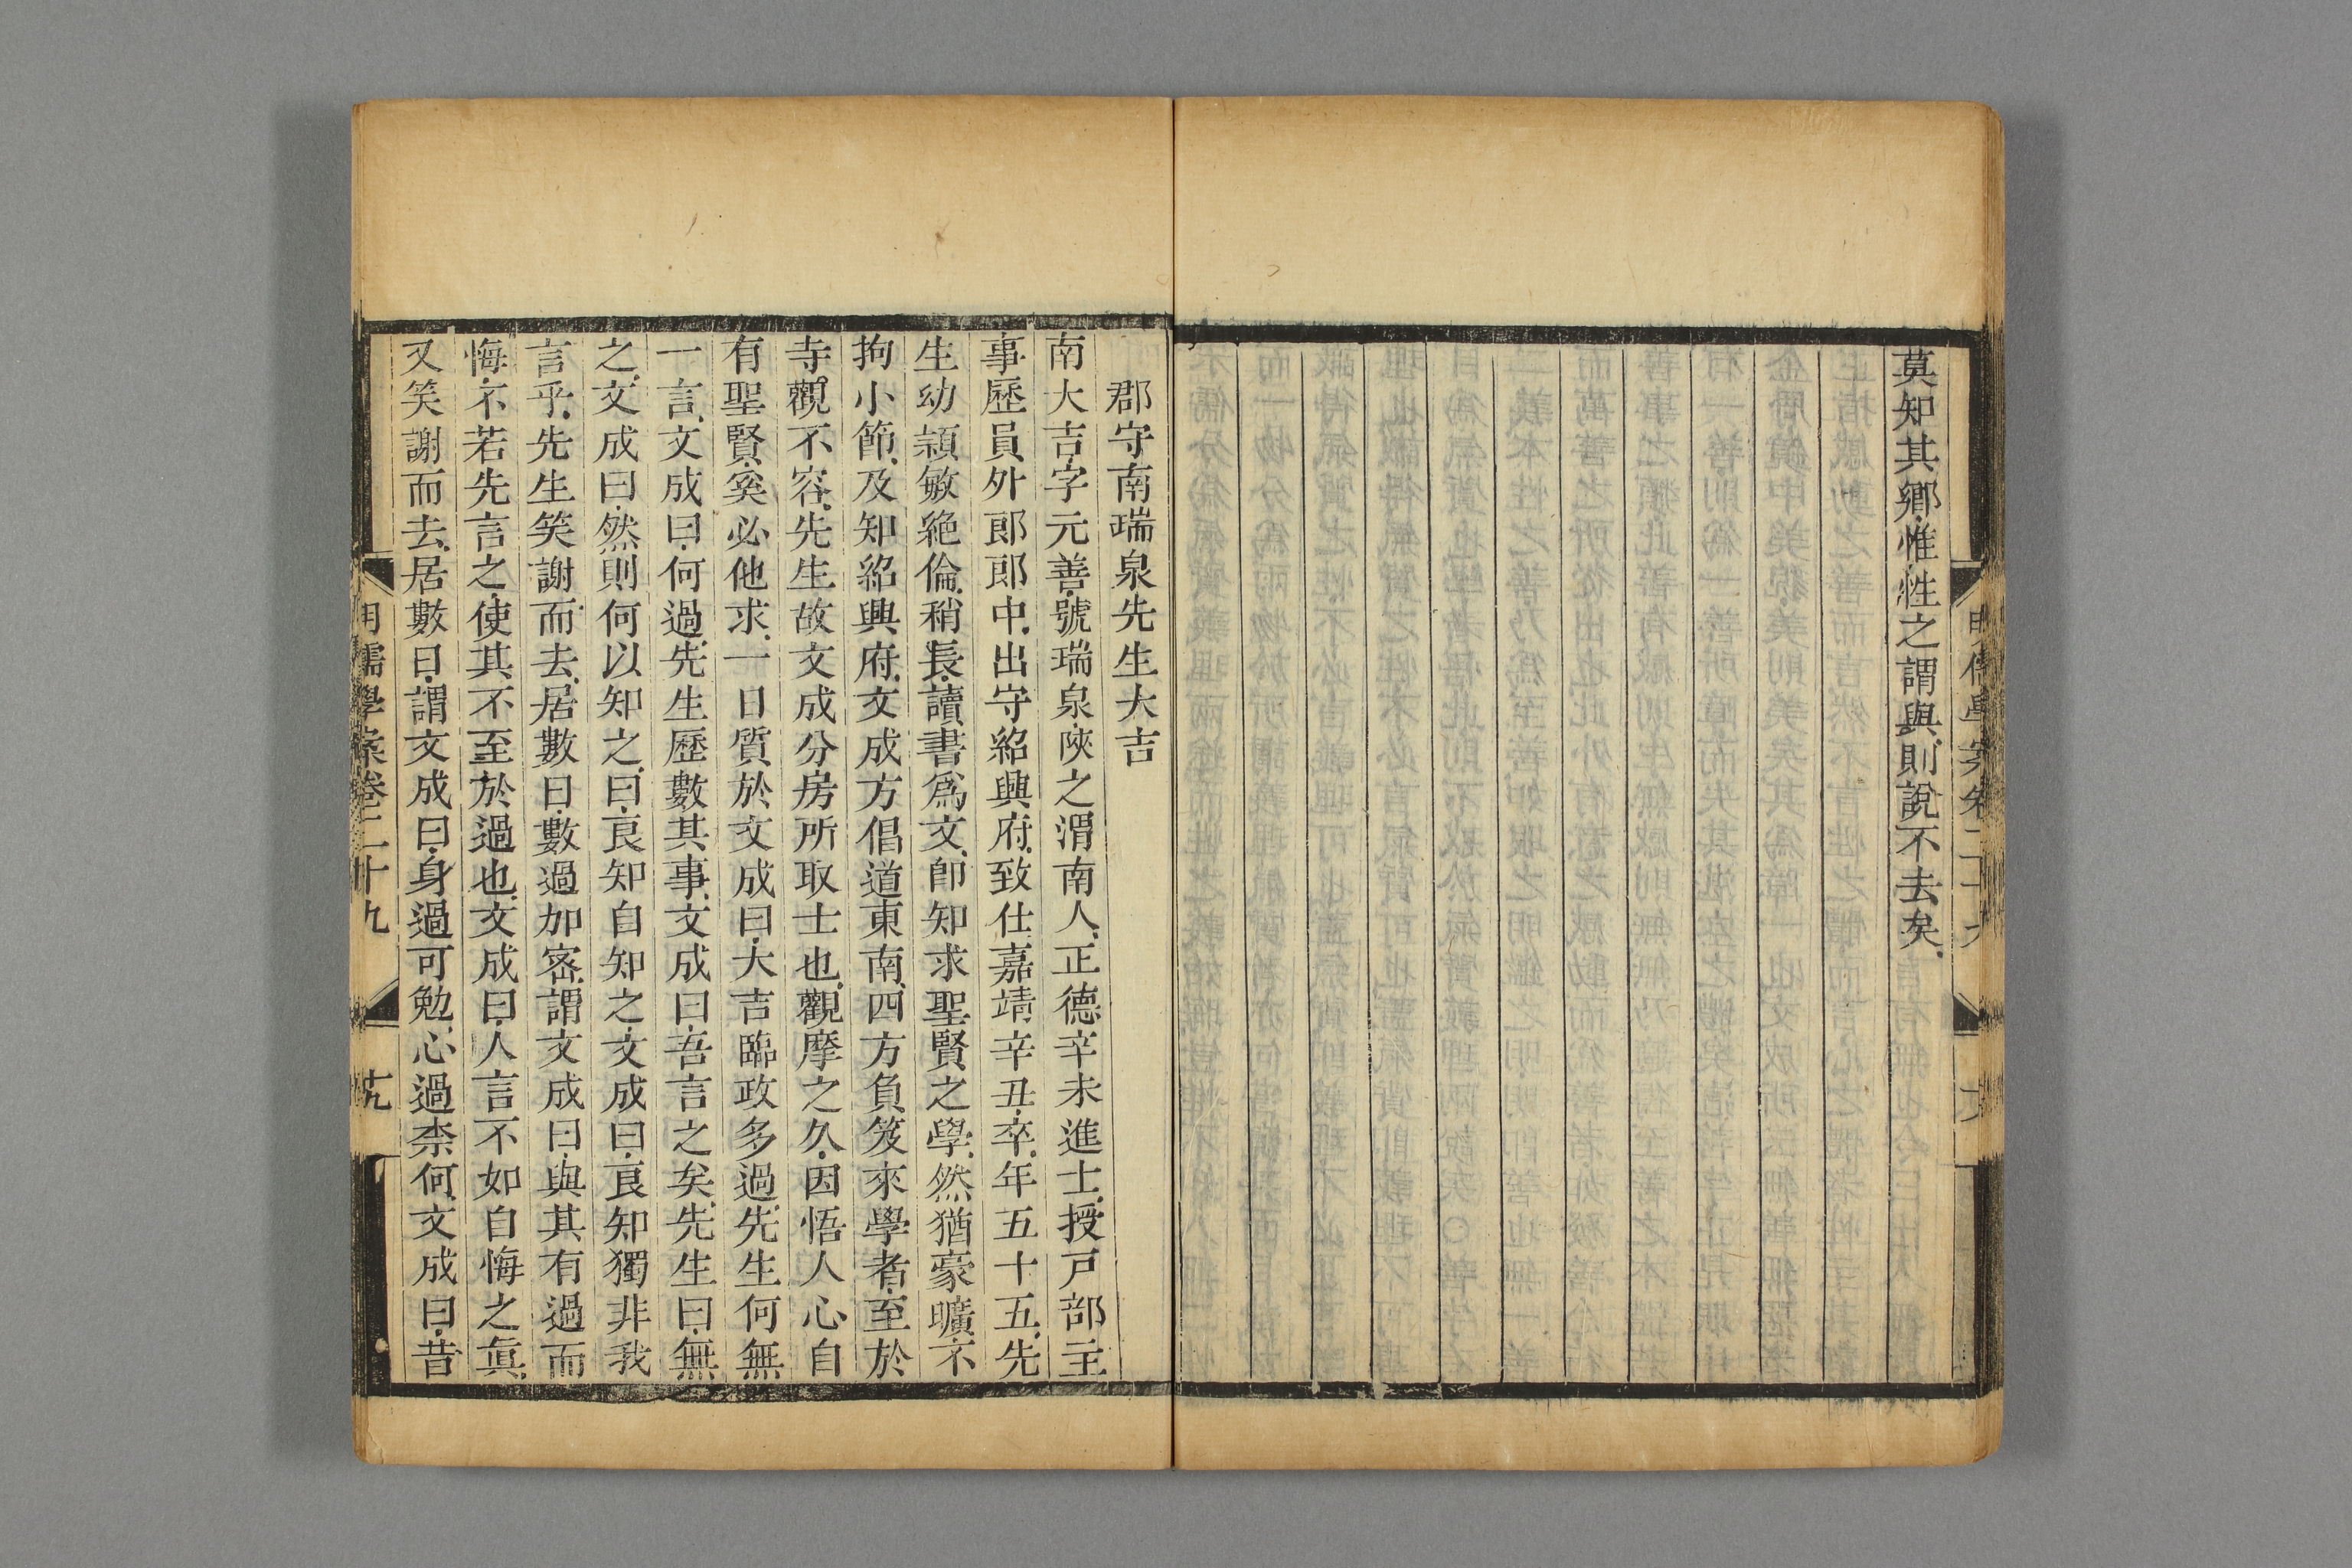 莫知其鄉惟性之謂與則說不去矣
郡守南瑞泉先生大吉
南大吉字元善號瑞泉陝之渭南人正德辛未進士授戸部主
事歷員外郎郎中出守紹興府致仕嘉靖辛丑卒年五十五先
生幼穎敏絶倫稍長讀書爲文卽知求聖賢之學然猶豪曠不
拘小節及知紹興府文成方倡道東南四方負笈來學者至於
寺觀不容先生故文成分房所取士也觀摩之久因悟人心自
有聖賢奚必他求一日質於文成曰大吉臨政多過先生何無
一言文成曰何過先生歷數其事文成曰吾言之矣先生曰無
之文成曰然則何以知之曰良知自知之文成曰良知獨非我
言乎先生笑謝而去居數日數過加密謂文成曰與其有過而
悔不若先言之使其不至於過也文成曰人言不如自悔之眞
又笑謝而去居數日謂文成曰身過可勉心過柰何文成曰昔
明儒學案卷二十九
十九